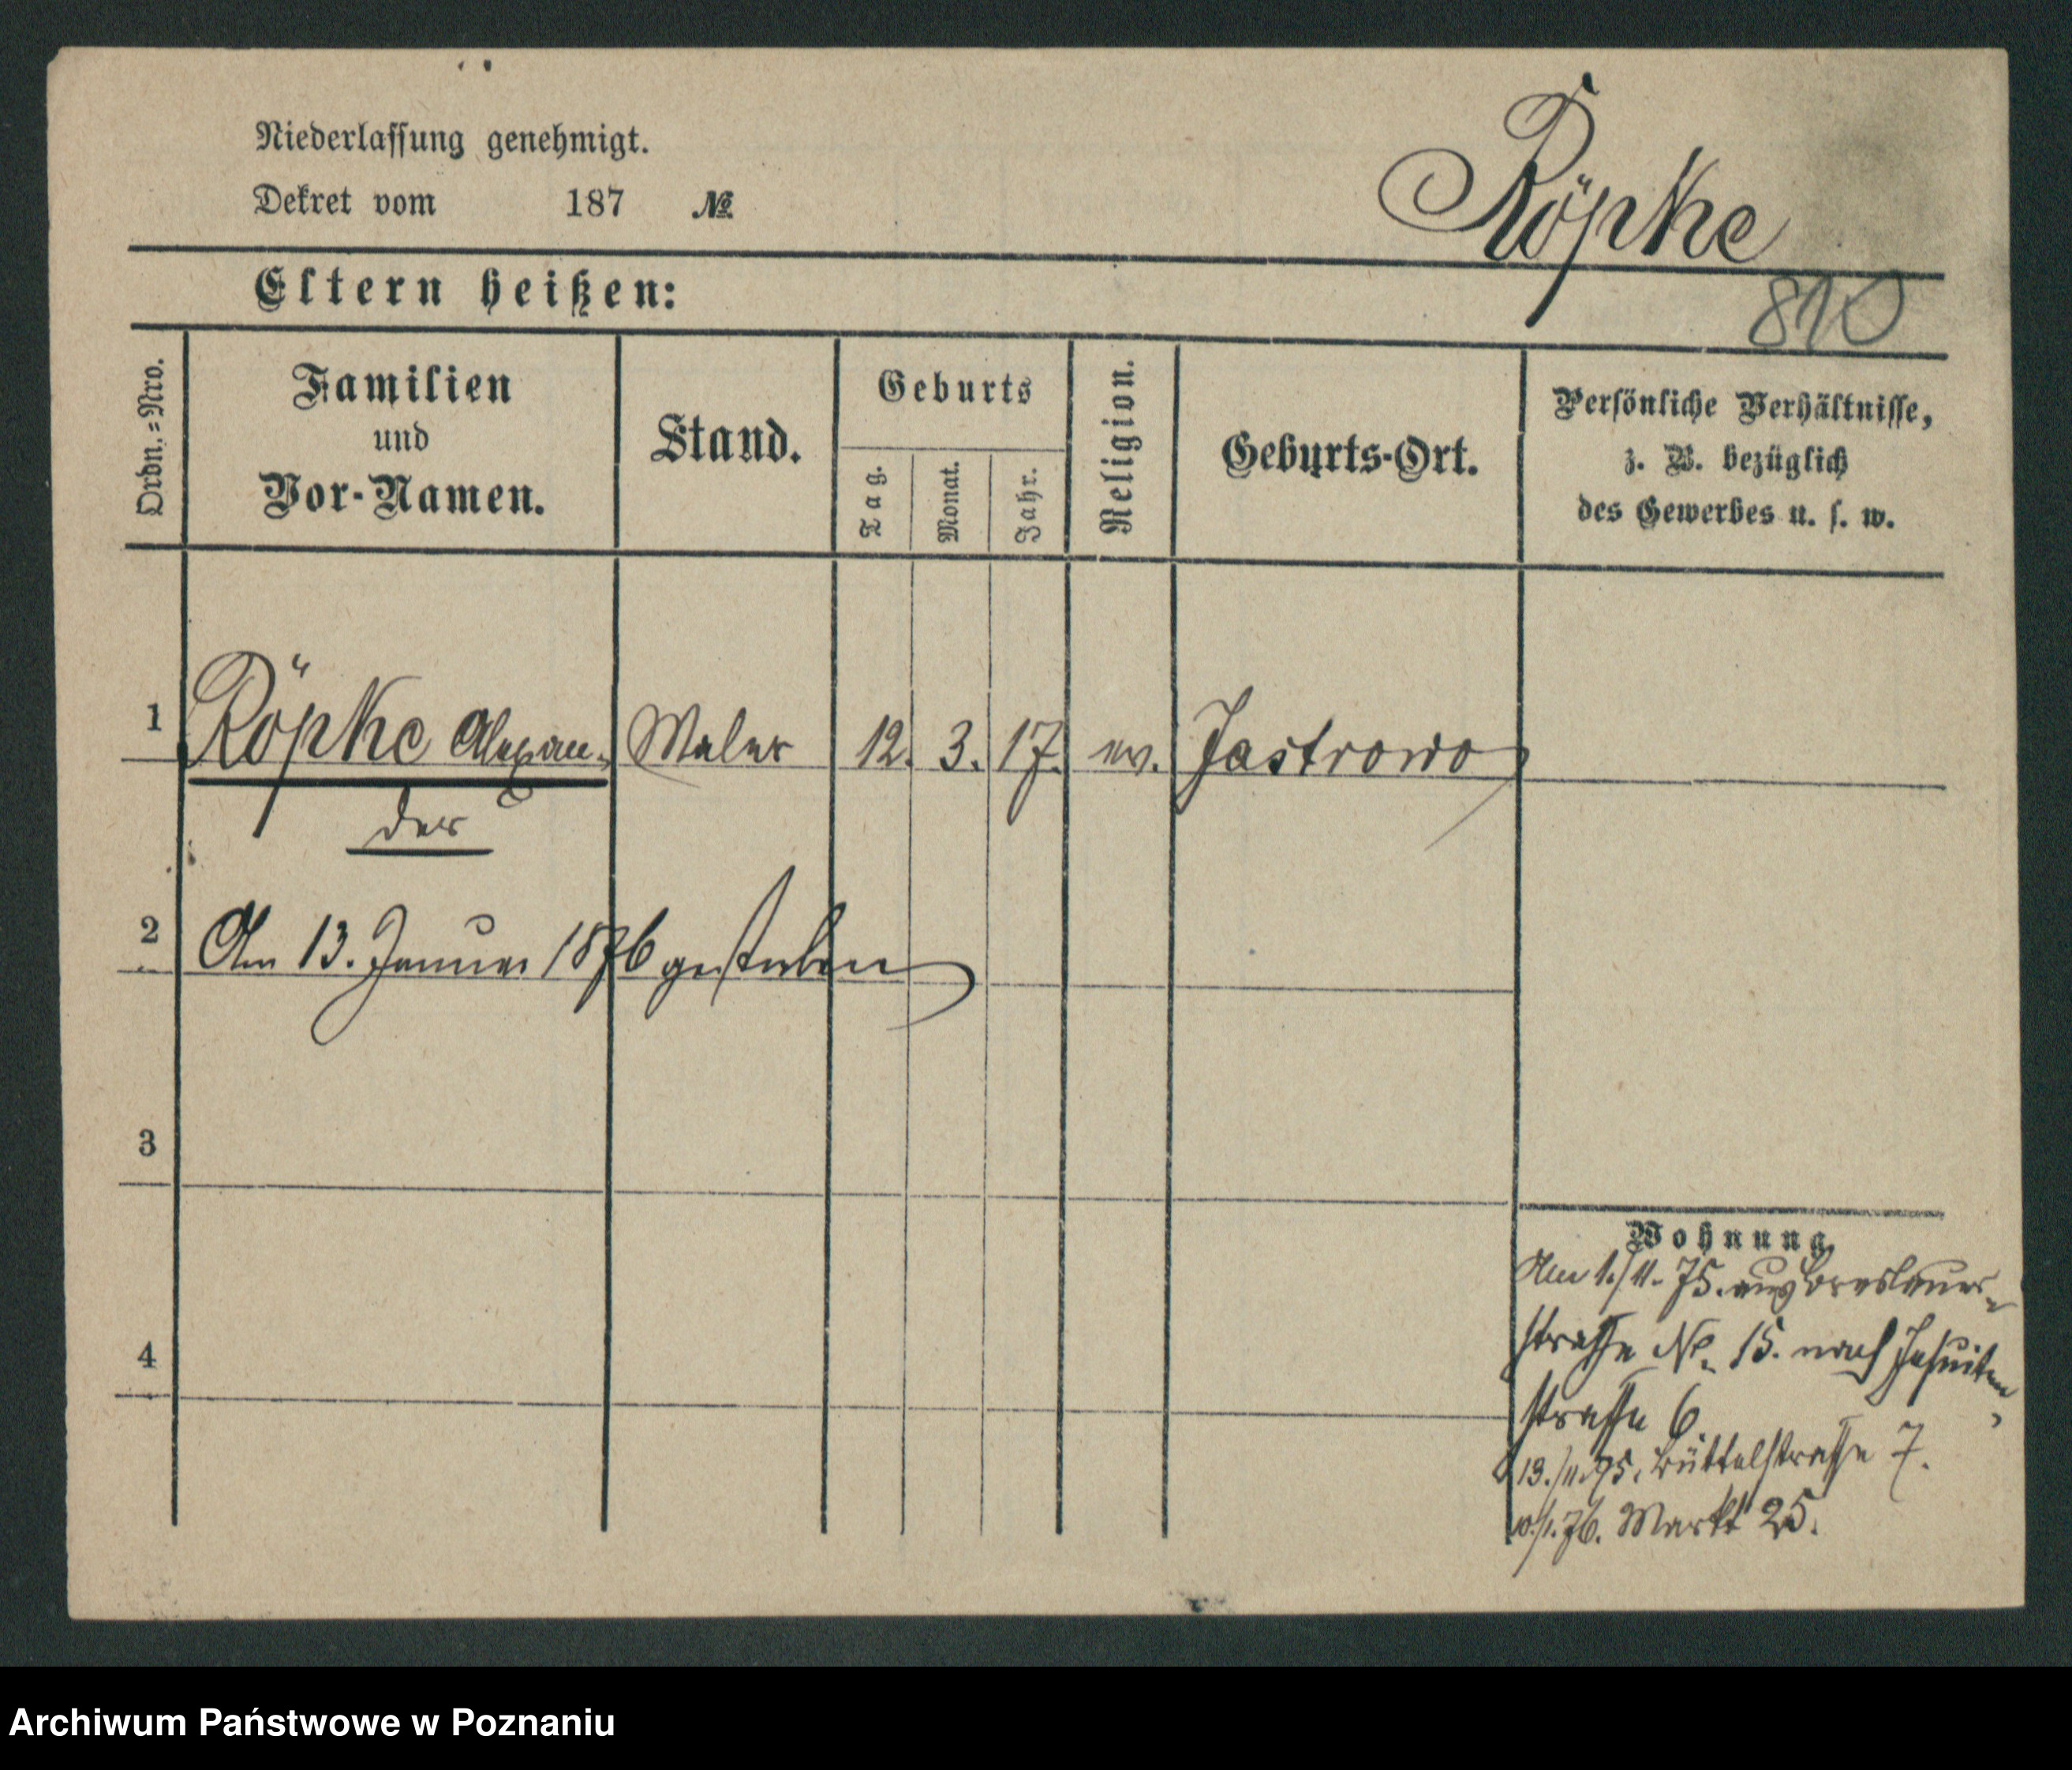 Niederlassung genehmigt.
Dekret vom 187 №
Röpke
Eltern heißen:
890
Ordn.=Nro.
Familien
und
Vor-Namen.
Stand.
Geburts
Tag.
Monat.
Jahr.
Religion.
Geburts-Ort.
Persönliche Verhältnisse,
z. B. bezüglich
des Gewerbes u. s. w.
1 Röpke Alexan- Maler 12. 3. 17. ev. Jastrowo
der
2 Am 13. Januar 1876 gestorben
3
4
Wohnung
Am 1./11. 75. aus Breslauer-
strasse No. 15. nach Jesuiten-
strasse 6
13./11. 75. Büttelstrasse 7.
10./1. 76. Markt 25.
Archiwum Państwowe w Poznaniu